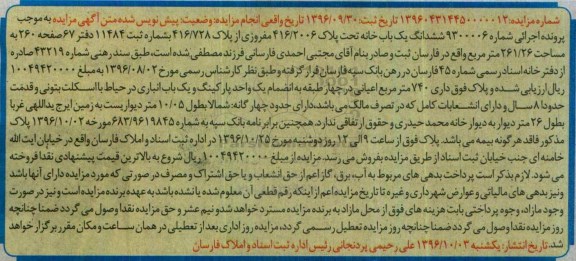 شماره مزایده: ۱۳۹۶۰۴۳۱۴۴۵۰۰۰۰۰۱۲ تاریخ ثبت: ۱۳۹۶/۰۹/۳۰ تاریخ واقعی انجام مزایده: وضعیت: پیش نویس شده متن آگهی مزایده به موجب
پرونده اجرائی شماره ۹۳۰۰۰۰۶ ششدانگ یک باب خانه تحت پلاک ۴۱۶/۲۰۰۶ مفروزی از پلاک ۴۱۶/۷۲۸ به شماره ثبت ۱۱۴۸۴ دفتر ۶۷ صفحه ۲۶۰ به
مساحت ۲۶۱/۲۶ متر مربع واقع در فارسان ثبت و صادر بنام آقای مجتبی احمدی فارسانی فرزند مصطفی شده است، طبق سند رهنی شماره ۴۳۲۱۹ صادره
از دفترخانه اسناد رسمی شماره ۴۵ فارسان در رهن بانک سپه فارسان قرار گرفته و طبق نظر کارشناس رسمی مورخ ۱۳۹۶/۰۸/۰۲ به مبلغ ۱۰۰۴۹۴۲۰۰۰۰
ریال ارزیابی شده و پلاک فوق دارای ۷۴۰ متر مربع اعیانی در چهار طبقه به انضمام یک واحد پارکینگ و یک باب انباری در حیاط با اسکلت بتونی و قدمت
حدودا ۸ سال و دارای انشعابات کامل که در تصرف مالک می باشد، دارای حدود چهارگانه: شمالا بطول ۱۰/۰۵ متر دیواریست به زمین ایرج یداللهی غربا
بطول ۲۶ متر دیوار به دیوار خانه محمد حیدری و حقوق ارتفاقی ندارد. همچنین برابر نامه بانک سپه به شماره ۶۸۳/۹۶۱۹۸۴۵ مورخه ۱۳۹۶/۱۰/۰۲ پلاک
مذکور فاقد هرگونه بیمه می باشد. پلاک فوق از ساعت ۹ الی ۱۲ روز دوشنبه مورخ ۱۳۹۶/۱۰/۲۵ در اداره ثبت اسناد و املاک فارسان واقع در خیابان آیت الله
خامنه ای جنب خیابان ثبت اسناد از طریق مزایده بفروش می رسد. مزایده از مبلغ ۱۰۰۴۹۴۲۰۰۰۰ ریال شروع به بالاترین قیمت پیشنهادی نقدا فروخته
می شود. لازم بذکر است پرداخت بدهی های مربوط به آب، برق، گاز اعم از حق انشعاب و یا حق اشتراک و مصرف در صورتی که مورد مزایده دارای آنها باشد
و نیز بدهی های مالیاتی و عوارض شهرداری و غیره تا تاریخ مزایده اعم از اینکه رقم قطعی آن معلوم شده یا نشده باشد به عهده برنده مزایده است و نیز در صورت
وجود مازاد، وجوه پرداختی بابت هزینه های فوق از محل مازاد به برنده مزایده مسترد خواهد شد و نیم عشر و حق مزایده نقدا وصول می گردد ضمنا چنانچه
روز مزایده نقدا وصول می گردد ضمنا چنانچه روز مزایده تعطیل رسمی گردد، مزایده روز اداری بعد از تعطیلی در همان ساعت و مکان مقرر برگزار خواهد
شد. تاریخ انتشار: یکشنبه ۱۳۹۶/۱۰/۰۳ علی رحیمی پردنجانی رئیس اداره ثبت اسناد و املاک فارسان